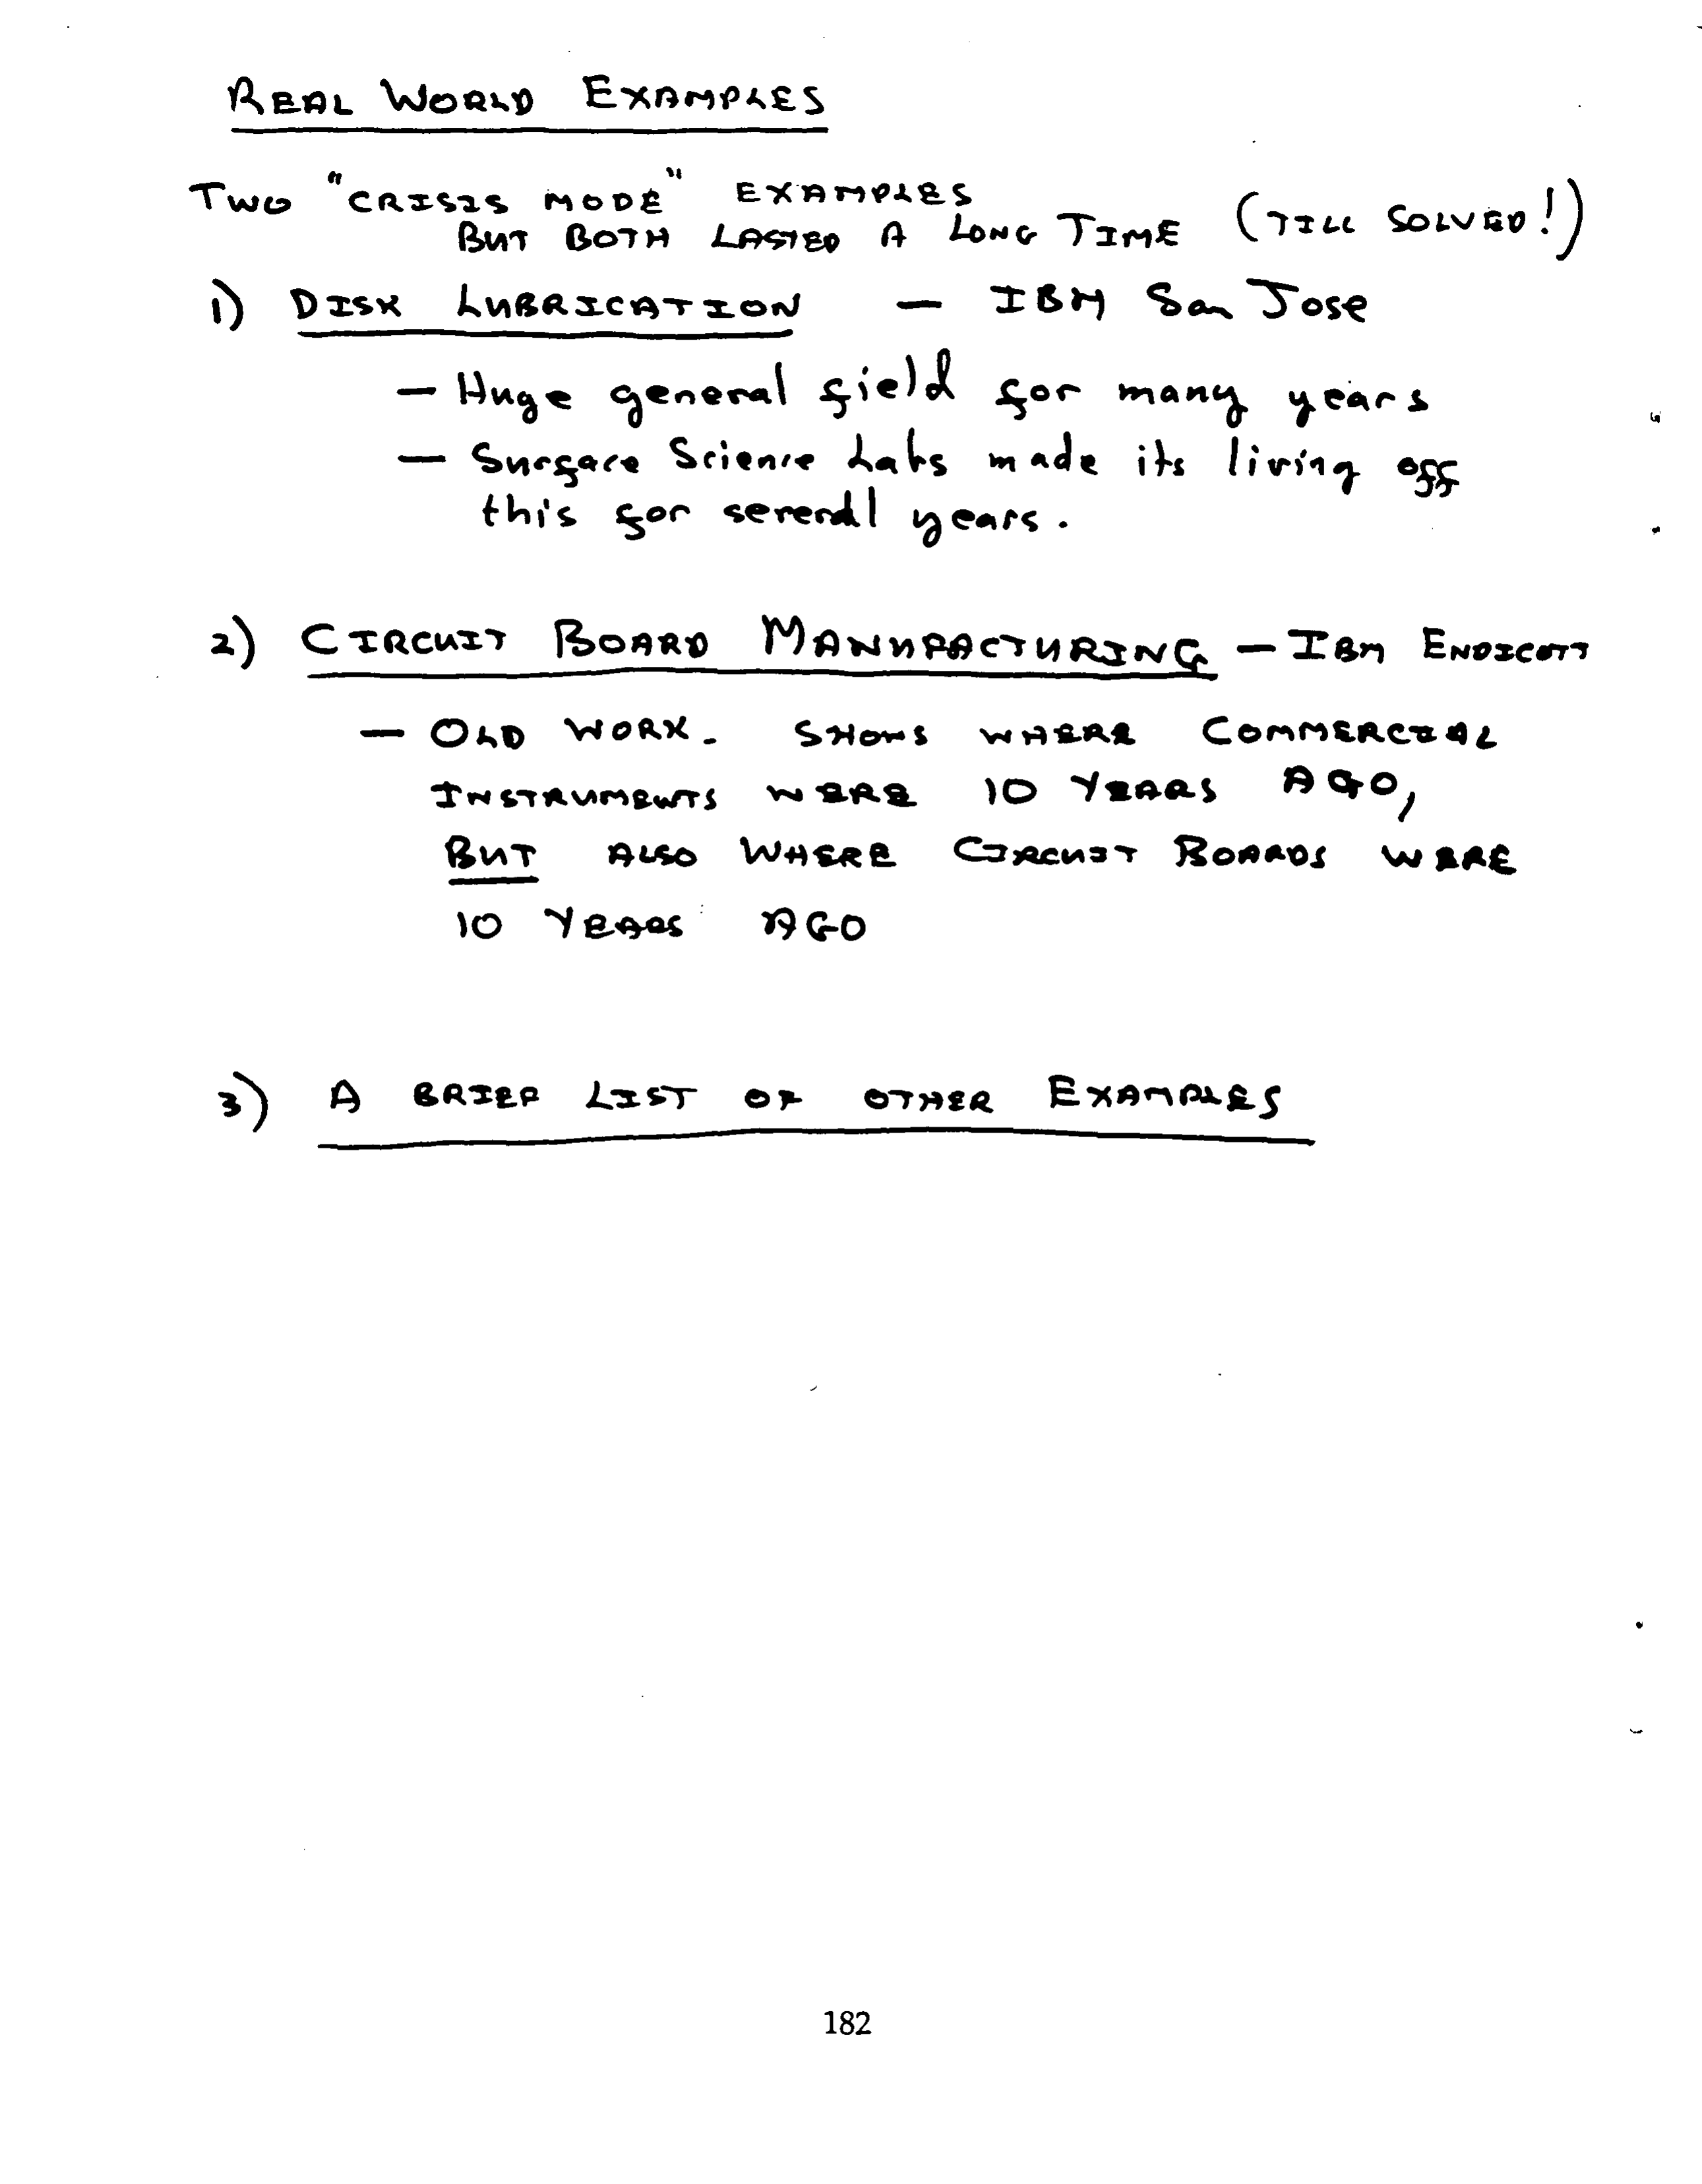 REAL WORLD EXAMPLES
TWO "CRISIS MODE" EXAMPLES
BUT BOTH LASTED A LONG TIME (TILL SOLVED!)
1) DISK LUBRICATION — IBM San Jose
— Huge general field for many years
— Surface Science Labs made its living off
this for several years.
2) CIRCUIT BOARD MANUFACTURING — IBM ENDICOTT
— OLD WORK. SHOWS WHERE COMMERCIAL
INSTRUMENTS WERE 10 YEARS AGO,
BUT ALSO WHERE CIRCUIT BOARDS WERE
10 YEARS AGO
3) A BRIEF LIST OF OTHER EXAMPLES
182